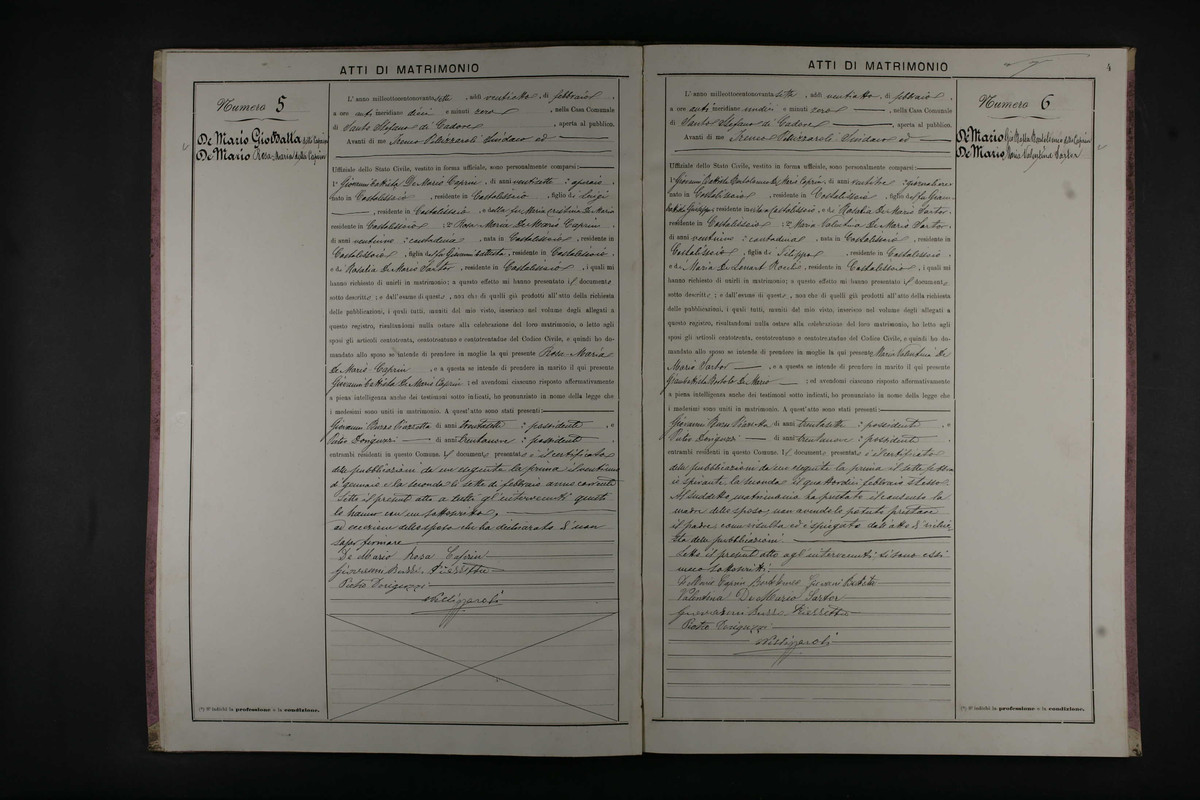 ATTI DI MATRIMONIO
Numero 5
De Mario Gio Batta della Caprin
De Mario Rosa Maria della Caprin
L' anno millenovecentonovantasette, addì ventiotto di febbraio,
a ore anti meridiane dieci e minuti zero, nella Casa Comunale
di Santo Stefano di Cadore, aperta al pubblico.
Avanti di me
Sindaco ed
Uffiziale dello Stato Civile, vestito in forma uffiziale, sono personalmente comparsi:
1° Giovanni Battista De Mario Caprin, di anni ventisette, operaio
nato in Costalissoio, residente in Costalissoio, figlio di Luigi
, residente in Costalissoio, e della fu Maria Cristina De Mario
residente in Costalissoio; 2° Rosa Maria De Mario Caprin
di anni ventuno, contadina, nata in Costalissoio, residente in
Costalissoio, figlia del fu Giovanni Battista, residente in Costalissoio
e di Rosalia De Mario Sartor, residente in Costalissoio, i quali mi
hanno richiesto di unirli in matrimonio; a questo effetto mi hanno presentato il documento
sotto descritto; e dall'esame di questo, non che di quelli già prodotti all'atto della richiesta
delle pubblicazioni, i quali tutti, muniti del mio visto, inserisco nel volume degli allegati a
questo registro, risultandomi nulla ostare alla celebrazione del loro matrimonio, ho letto agli
sposi gli articoli centotrenta, centotrentuno e centotrentadue del Codice Civile, e quindi ho do-
mandato allo sposo se intende di prendere in moglie la qui presente Rosa Maria
De Mario Caprin, e a questa se intende di prendere in marito il qui presente
Giovanni Battista De Mario Caprin; ed avendomi ciascuno risposto affermativamente
a piena intelligenza anche dei testimoni sotto indicati, ho pronunziato in nome della legge che
i medesimi sono uniti in matrimonio. A quest'atto sono stati presenti:
Giovanni Buzzo Piazzetta di anni trentasette, possidente, e
Pietro Doriguzzi di anni trentanove, possidente
entrambi residenti in questo Comune. Il documento presentato è il certificato
delle pubblicazioni da me eseguite la prima il
di gennaio e la seconda il sette di febbraio anno corrente
Letto il presente atto a tutti gli intervenuti questi
lo hanno con me sottoscritto,
ad eccezione dello sposo che ha dichiarato di non
saper firmare
De Mario Rosa Caprin
Giovanni Buzzo Piazzetta
Pietro Doriguzzi
(*) Si indichi la professione o la condizione.
ATTI DI MATRIMONIO
4
Numero 6
De Mario Gio Batta Bortolomeo della Caprin
De Mario Maria Valentina Sartor
L' anno millenovecentonovantasette, addì ventiotto di febbraio,
a ore anti meridiane undici e minuti zero, nella Casa Comunale
di Santo Stefano di Cadore, aperta al pubblico.
Avanti di me
Sindaco ed
Uffiziale dello Stato Civile, vestito in forma uffiziale, sono personalmente comparsi:
1° Giovanni Battista Bortolomeo De Mario Caprin, di anni ventitre, giornaliere
nato in Costalissoio, residente in Costalissoio, figlio del fu Giovan
Battista Giuseppe, residente in Costalissoio, e di Rosalia De Mario Sartor
residente in Costalissoio; 2° Maria Valentina De Mario Sartor
di anni ventuno, contadina, nata in Costalissoio, residente in
Costalissoio, figlia di Filippo, residente in Costalissoio
e di Maria De Lenart, residente in Costalissoio, i quali mi
hanno richiesto di unirli in matrimonio; a questo effetto mi hanno presentato il documento
sotto descritto; e dall'esame di questo, non che di quelli già prodotti all'atto della richiesta
delle pubblicazioni, i quali tutti, muniti del mio visto, inserisco nel volume degli allegati a
questo registro, risultandomi nulla ostare alla celebrazione del loro matrimonio, ho letto agli
sposi gli articoli centotrenta, centotrentuno e centotrentadue del Codice Civile, e quindi ho do-
mandato allo sposo se intende di prendere in moglie la qui presente Maria Valentina De
Mario Sartor, e a questa se intende di prendere in marito il qui presente
Giovanni Battista Bortolo De Mario; ed avendomi ciascuno risposto affermativamente
a piena intelligenza anche dei testimoni sotto indicati, ho pronunziato in nome della legge che
i medesimi sono uniti in matrimonio. A quest'atto sono stati presenti:
Giovanni Buzzo Piazzetta di anni trentasette, possidente, e
Pietro Doriguzzi di anni trentanove, possidente
entrambi residenti in questo Comune. Il documento presentato è il certificato
delle pubblicazioni da me eseguite la prima il sette
la seconda il quattordici febbraio stesso.
Al suddetto matrimonio ha prestato il consenso la
madre dello sposo, non avendolo potuto prestare
il padre, come risulta ed è spiegato dall'atto di richie-
sta delle pubblicazioni.
Letto il presente atto agli intervenuti si sono essi
meco sottoscritti:
De Mario Caprin Bortolomeo Giovanni Battista
Valentina De Mario Sartor
Giovanni Buzzo Piazzetta
Pietro Doriguzzi
(*) Si indichi la professione o la condizione.